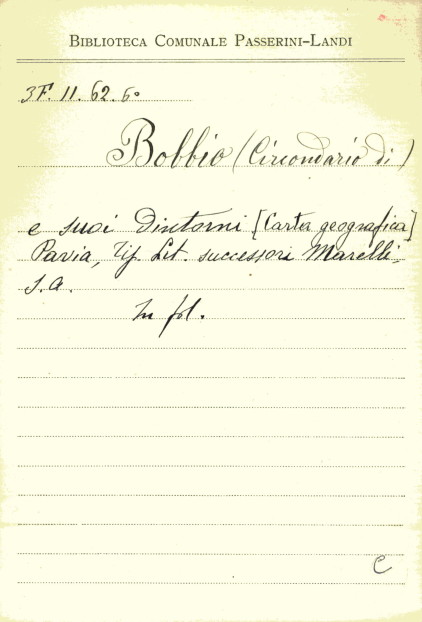 BIBLIOTECA COMUNALE PASSERINI-LANDI
3F. 11. 62. 6º
Bobbio (Circondario di)
e suoi Dintorni [Carta geografica]
Pavia, Tip. Lit. successori Marelli,
s.a.
In fol.
C